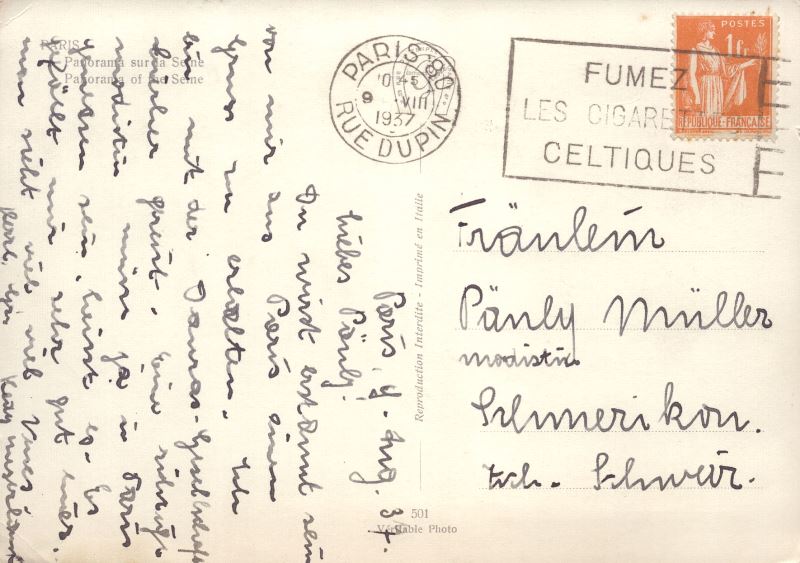 PARIS
Panorama sur la Seine
Panorama of the Seine
PARIS 80
RUE DUPIN
9 VIII
1937
FUMEZ
LES CIGARE
CELTIQUES
POSTES
1 fr
REPUBLIQUE-FRANCAISE
Reproduction Interdite - Imprimé en Italie
501
Véritable Photo
Fräulein
Päuly Müller
modistin
Schmerikon.
Schweiz.
Paris, 9. Aug. 37.
Liebes Päuly!
Du wirst erstaunt sein
von mir aus Paris einen
Gruss zu erhalten. Ich
bin mit der Gesellschaft
hierher gereist. Eine richtige
modistin müsse ja in Paris
gewesen sein, heisst es. Es
gefällt mir sehr gut hier,
man sieht viel viel Neues.